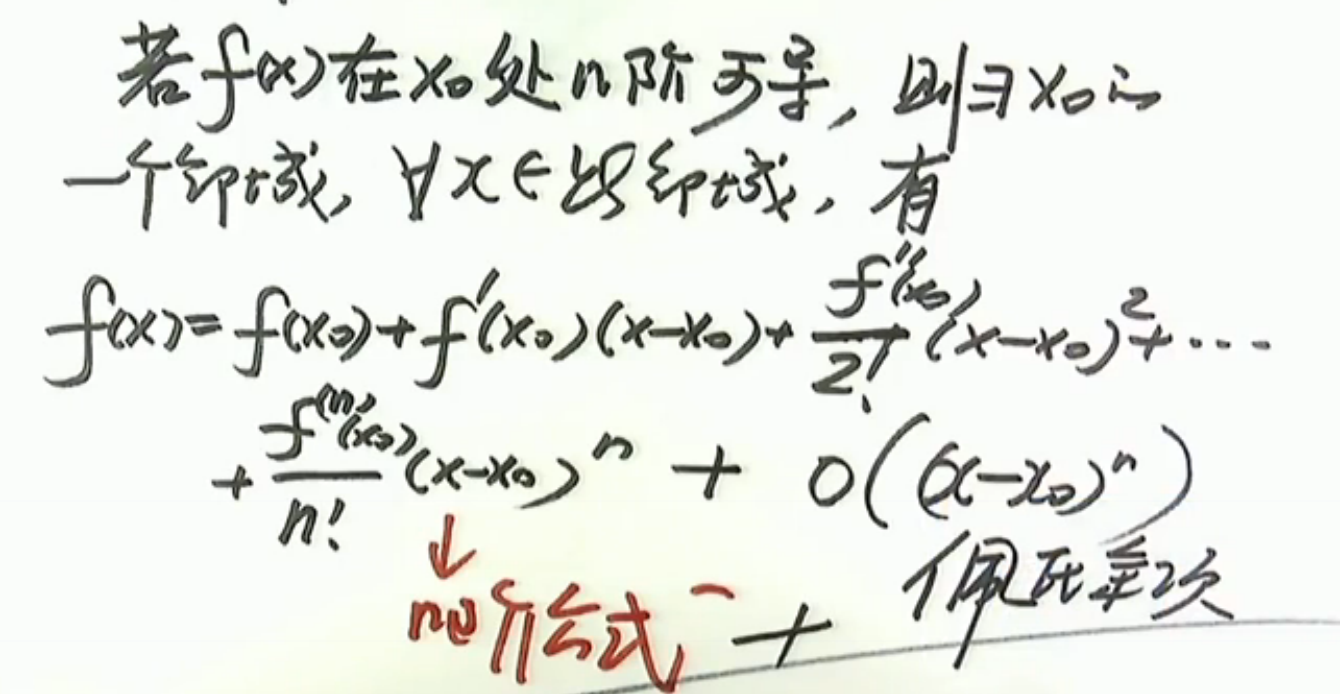 若f(x)在x₀处n阶可导,则∃x₀的
一个邻域,∀x∈该邻域,有
f(x)=f(x₀)+f′(x₀)(x-x₀)+f″(x₀)/2!(x-x₀)²+…
+f⁽ⁿ⁾(x₀)/n!(x-x₀)ⁿ + o((x-x₀)ⁿ)
↓
n + 佩氏余项